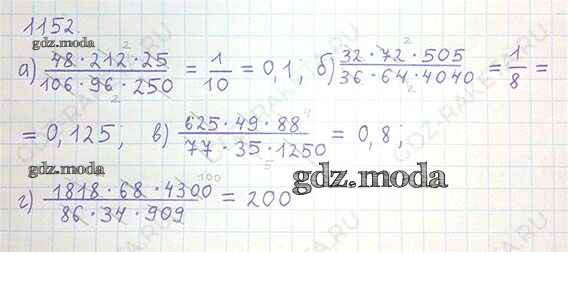 1152.
gdz.moda
а) 48·212·25 / 106·96·250 = 1/10 = 0,1; б) 32·72·505 / 36·64·4040 = 1/8 =
= 0,125; в) 625·49·88 / 77·35·1250 = 0,8;
gdz.moda
г) 1818·68·4300 / 86·34·909 = 200